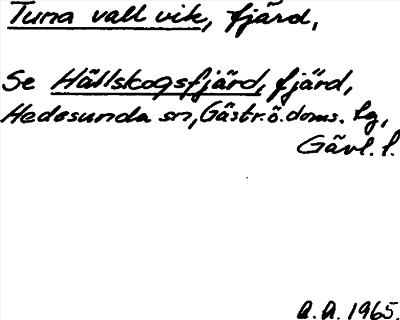 Tuna vall vik, fjärd,
Se Hällskogsfjärd, fjärd,
Hedesunda sn, Gästr. ö. doms. lg,
Gävl. l.
A.A. 1965.